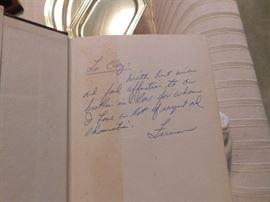 To Cory:
With best wishes
and fond affection to a
brother in law for whom
I have a lot of respect and
admiration.